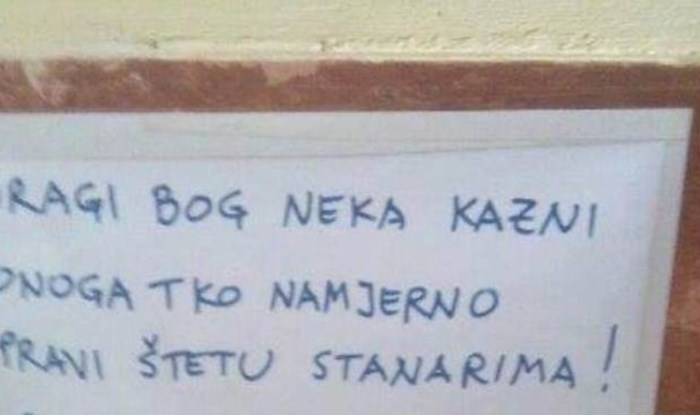 DRAGI BOG NEKA KAZNI
ONOGA TKO NAMJERNO
PRAVI ŠTETU STANARIMA!